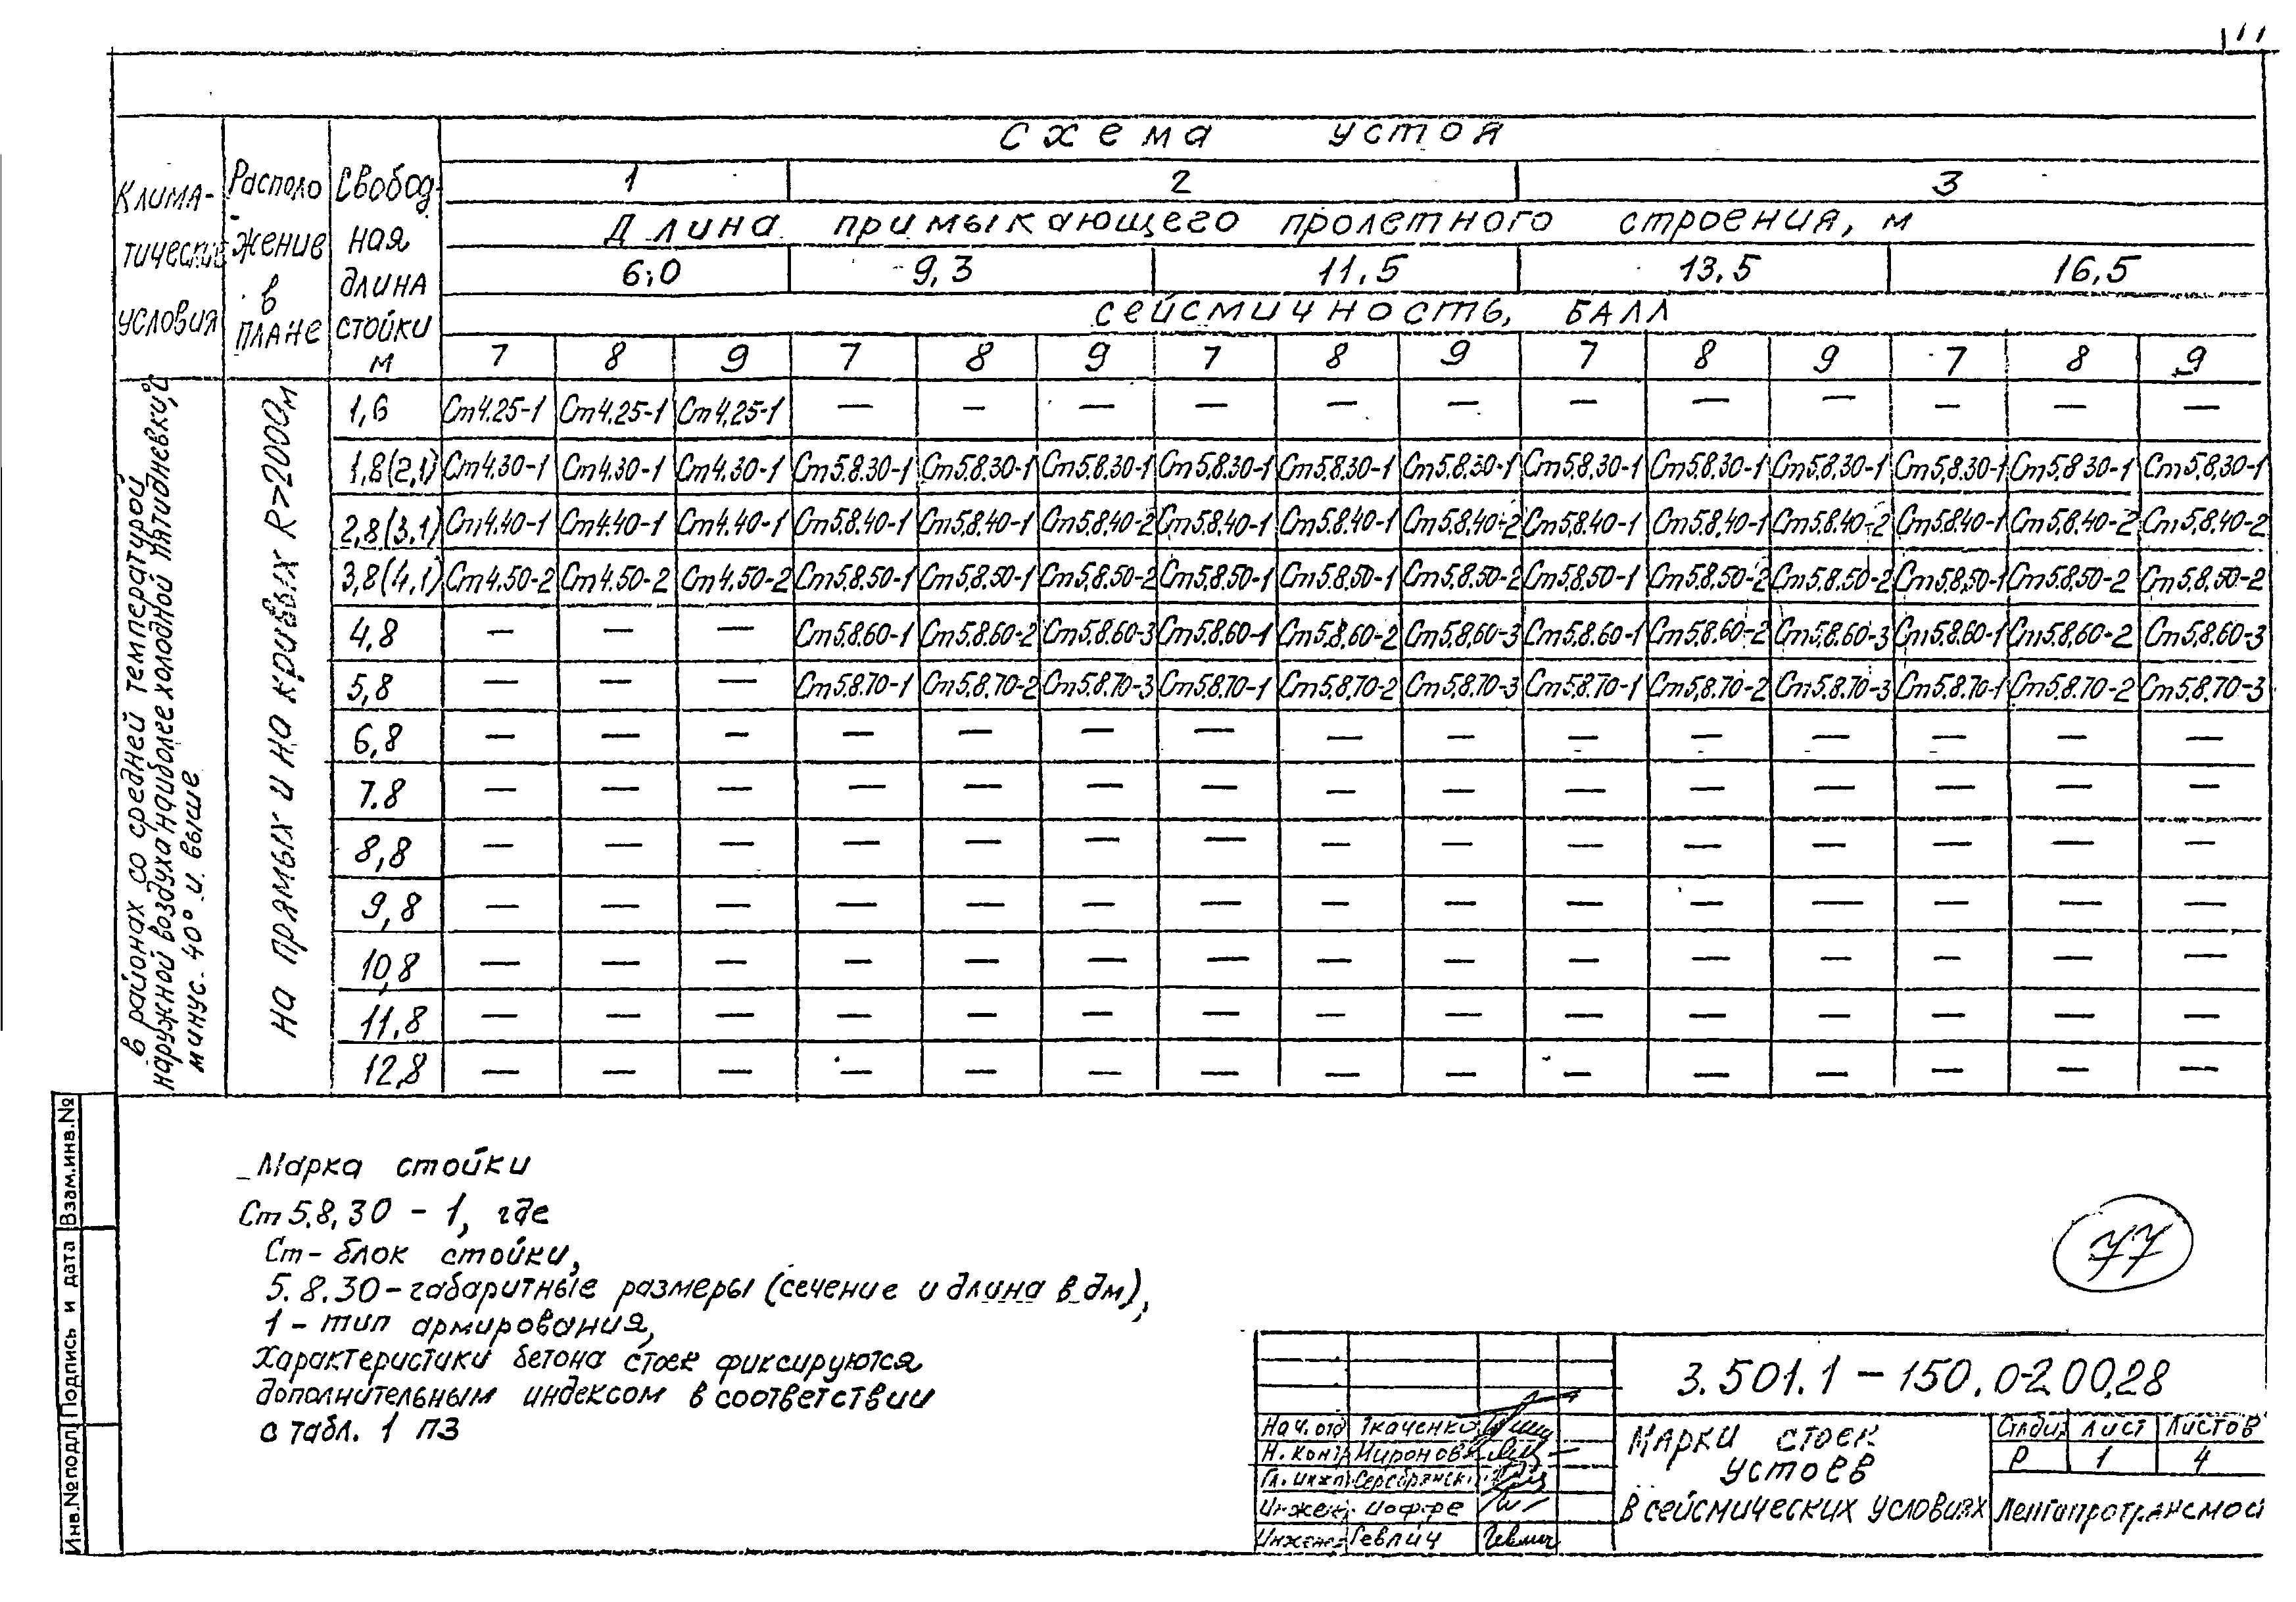 Схема устоя
Клима-
тические
условия
Располо
-жение
в
плане
Свобод-
ная
длина
стойки
м
1 2 3
Длина примыкающего пролетного строения, м
6,0 9,3 11,5 13,5 16,5
сейсмичность, балл
7 8 9 7 8 9 7 8 9 7 8 9 7 8 9
в районах со средней температурой
наружной воздуха наиболее холодной пятидневки,°С
минус 40° и выше
на прямых и на кривых R>2000м
1,6 Ст4.25-1 Ст4.25-1 Ст4.25-1 — — — — — — — — — — — —
1,8(2,1) Ст4.30-1 Ст4.30-1 Ст4.30-1 Ст5.8.30-1 Ст5.8.30-1 Ст5.8.30-1 Ст5.8.30-1 Ст5.8.30-1 Ст5.8.30-1 Ст5.8.30-1 Ст5.8.30-1 Ст5.8.30-1 Ст5.8.30-1 Ст5.8 30-1 Ст5.8.30-1
2,8(3,1) Ст4.40-1 Ст4.40-1 Ст4.40-1 Ст5.8.40-1 Ст5.8.40-1 Ст5.8.40-2 Ст5.8.40-1 Ст5.8.40-1 Ст5.8.40-2 Ст5.8.40-1 Ст5.8.40-1 Ст5.8.40-2 Ст5.8.40-1 Ст5.8.40-2 Ст5.8.40-2
3,8(4,1) Ст4.50-2 Ст4.50-2 Ст4.50-2 Ст5.8.50-1 Ст5.8.50-1 Ст5.8.50-2 Ст5.8.50-1 Ст5.8.50-1 Ст5.8.50-2 Ст5.8.50-1 Ст5.8.50-2 Ст5.8.50-2 Ст5.8.50-1 Ст5.8.50-2 Ст5.8.50-2
4,8 — — — Ст5.8.60-1 Ст5.8.60-2 Ст5.8.60-3 Ст5.8.60-1 Ст5.8.60-2 Ст5.8.60-3 Ст5.8.60-1 Ст5.8.60-2 Ст5.8.60-3 Ст5.8.60-1 Ст5.8.60-2 Ст5.8.60-3
5,8 — — — Ст5.8.70-1 Ст5.8.70-2 Ст5.8.70-3 Ст5.8.70-1 Ст5.8.70-2 Ст5.8.70-3 Ст5.8.70-1 Ст5.8.70-2 Ст5.8.70-3 Ст5.8.70-1 Ст5.8.70-2 Ст5.8.70-3
6,8 — — — — — — — — — — — — — — —
7.8 — — — — — — — — — — — — — — —
8,8 — — — — — — — — — — — — — — —
9,8 — — — — — — — — — — — — — — —
10,8 — — — — — — — — — — — — — — —
11.8 — — — — — — — — — — — — — — —
12,8 — — — — — — — — — — — — — — —
Марка стойки
Ст 5.8.30 - 1, где
Ст- блок стойки,
5.8.30 - габаритные размеры (сечение и длина в дм),
1 - тип армирования,
Характеристики бетона стоек фиксируются
дополнительным индексом в соответствии
с табл. 1 ПЗ
77
Инв.№подл. Подпись и дата Взам.инв.№
3.501.1 - 150.0-2.00.28
Нач. отд Ткаченко
Н. контр Миронов
Гл. инжп Серебрянск
Инжен. Иоффе
Инжене Гевлич Гевлич
Марки стоек
устоев
в сейсмических условиях
Стадия Лист Листов
Р 1 4
Ленгипротрансмост